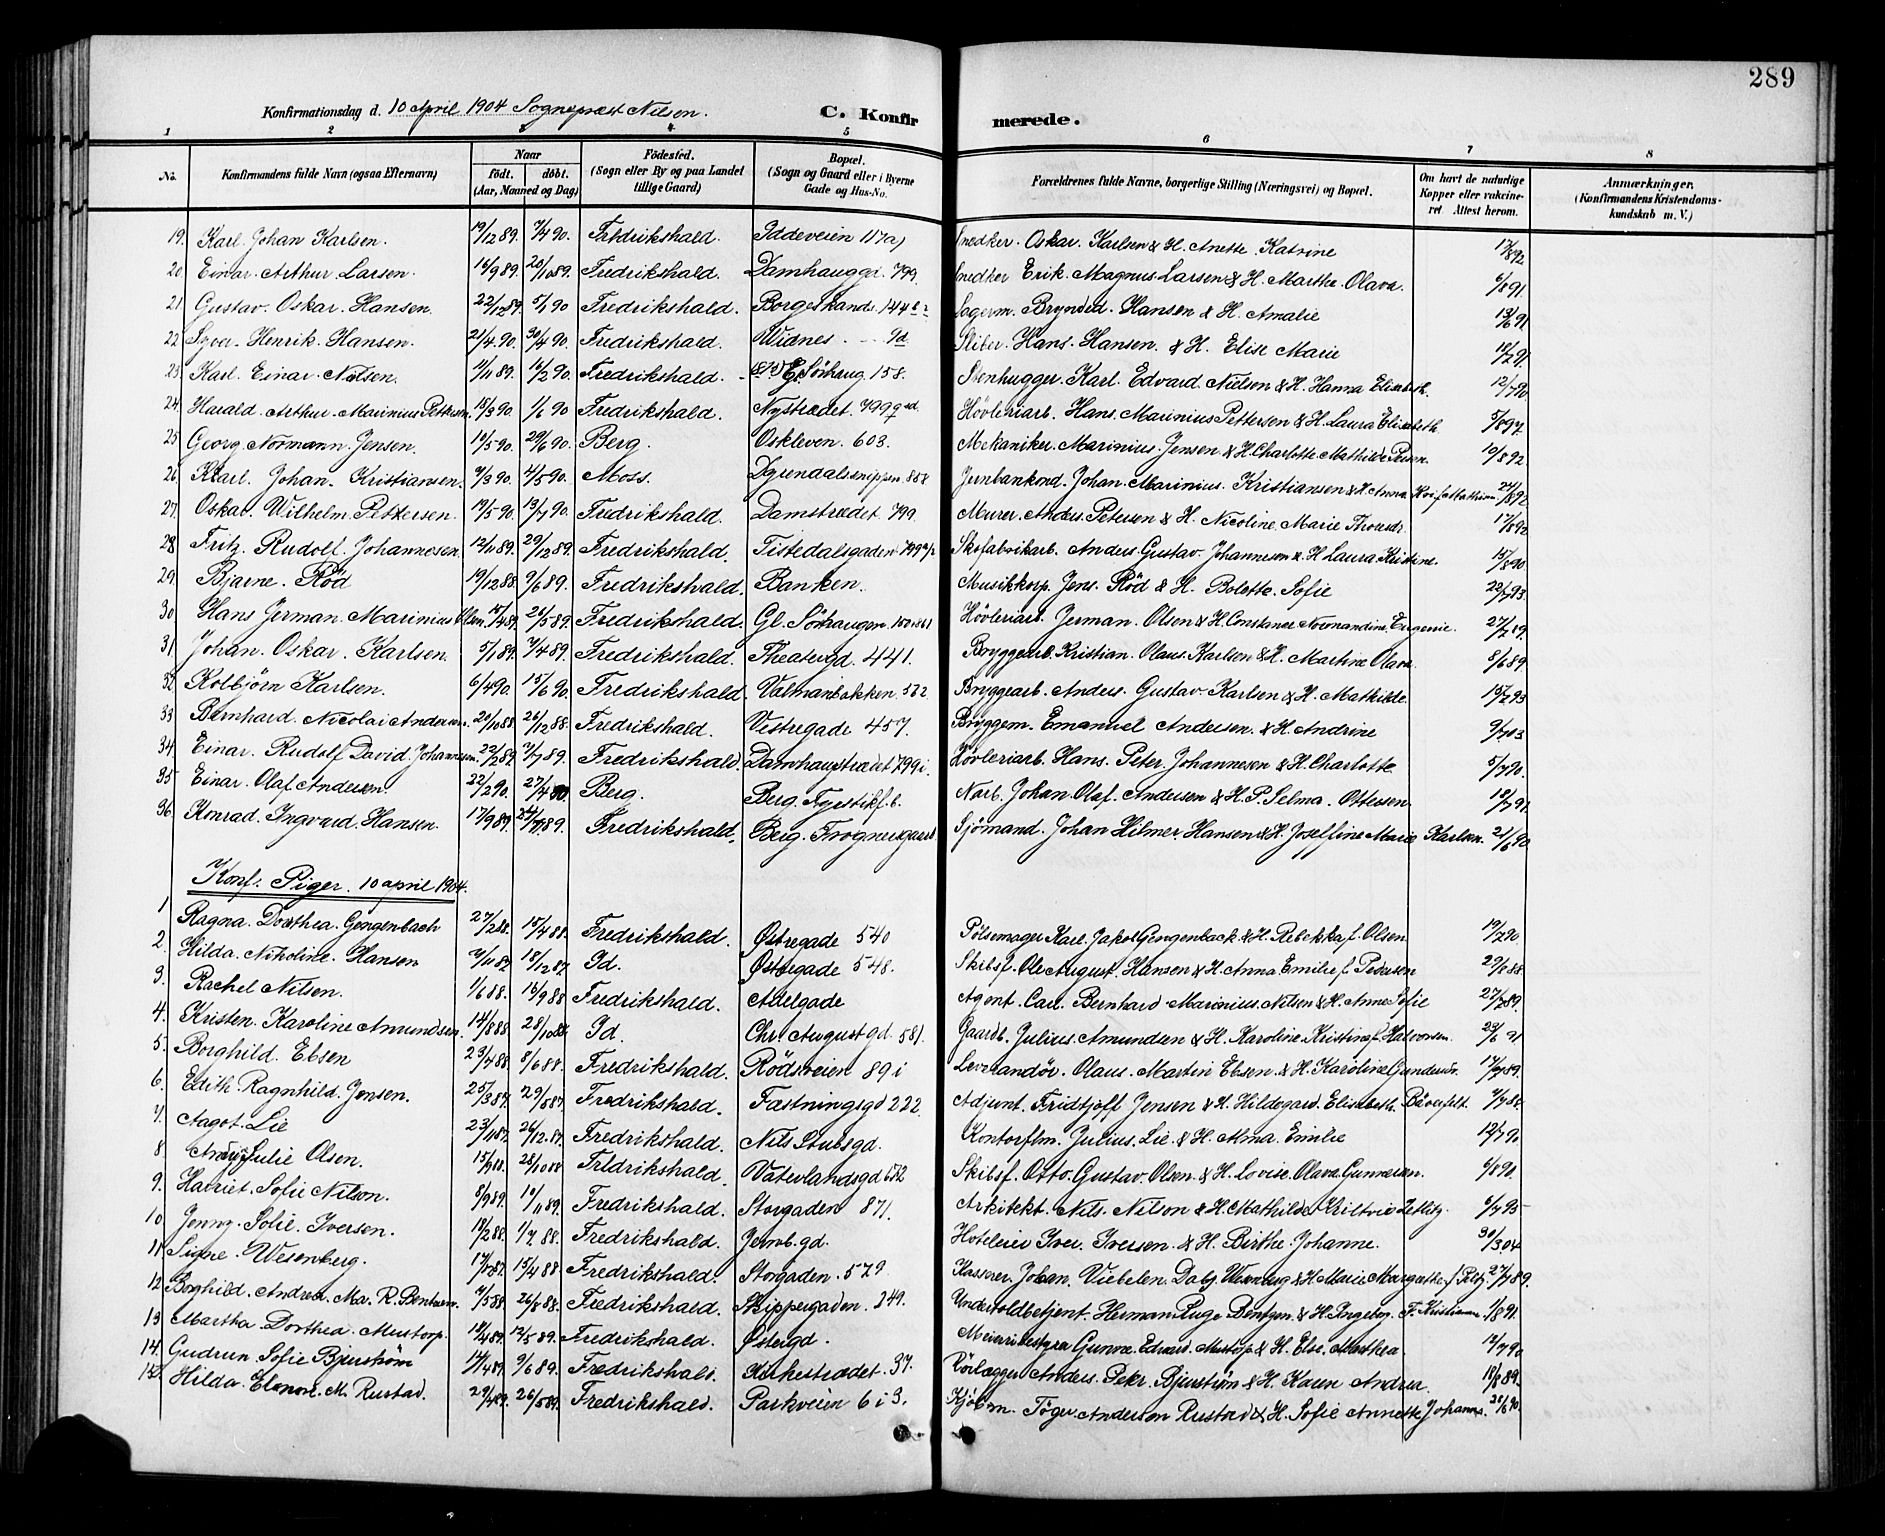 289
Konfirmationsdag d. 10 April 1904 Sogneprest Nilsen. C. Konfirmerede.
1 2 3 4 5 6 7 8
No. Konfirmandens fulde Navn (ogsaa Efternavn) Naar födt. döbt. (Aar, Maaned og Dag) Födested. (Sogn eller By og paa Landet tillige Gaard) Bopæl. (Sogn og Gaard eller i Byerne Gade og Hus-No. Forældrenes fulde Navne, borgerlige Stilling (Næringsvei) og Bopæl. Om havt de naturlige Kopper eller vakcineret. Attest herom. Anmærkninger. (Konfirmandens Kristendomskundskab m. V.)
19. Karl Johan Karlsen. 19/12 89. 7/4 90. Fredrikshald. Iddeveien 117a) Snedker Oskar Karlsen & H. Anette Katrine 17/8 92
20. Einar Arthur Larsen. 14/9 89. 20/10 89. Fredrikshald. Damhauggd. 799. Snedker Erik Magnus Larsen & H. Marthe Olava. 6/8 91.
21. Gustav Oskar Hansen. 22/12 89. 5/1 90 Fredrikshald. Sagerm. Brynild Hansen & H. Amalie 13/6 91
22. Syver Henrik Hansen. 21/4 90. 30/4 90. Fredrikshald. Widnes 9d Sliber Hans Hansen & H. Elise Marie 10/7 91.
23. Karl Einar Nilsen. 1/11 89. 16/2 90. Fredrikshald. Sörhaug 158. Stenhugger Karl Edvard Nilsen & H. Hanna Elisabeth. 12/7 90.
24. Harald Arthur Marinius Pettersen. 15/3 90. 1/6 90 Fredrikshald. Nystrædet 799 Hövleriarb. Hans Marinius Pettersen & H. Laura Elisabeth 5/8 97.
25. Georg Normann Jensen. 19/5 90. 29/6 90. Berg. Oskleven 603. Mekaniker Marinius Jensen & H. Charlotte Mathilde 19/8 92.
26. Karl Johan Kristiansen. 7/3 90. 4/5 90. Moss. Jernbankond. Johan Marinius Kristiansen & H. Anna 24/8 92
27. Oskar Wilhelm Pettersen. 19/5 90. 13/7 90. Fredrikshald. Damstrædet 799. Murer Anders Petersen & H. Nicoline Marie 17/6 92
28. Fritz Rudolf Johannesen. 12/11 89. 29/12 89. Fredrikshald. Tistedalsgaden 799 Skofabrikarb. Anders Gustav Johannesen & H. Laura Kristine. 15/8 90.
29. Bjarne Röd 19/12 88. 9/6 89. Fredrikshald. Banken. Musikkorp. Jens Röd & H. Bolette Sofie 22/7 93.
30. Hans Jerman Marinius Olsen. 15/4 89. 26/5 89. Fredrikshald. Gl. Sörhaugen Hövleriarb. Jerman Olsen & H. Constance Normandine Eugenie. 27/7 89.
31. Johan Oskar Karlsen. 5/1 89. 7/4 89. Fredrikshald. Theatergd. 441. Bryggearb. Kristian Olaus Karlsen & H. Martine Olava 8/6 89.
32. Kolbjörn Karlsen. 6/4 90. 15/6 90. Fredrikshald. Valmanbakken 522. Bryggearb. Anders Gustav Karlsen & H. Mathilde. 15/7 93
33. Bernhard Nicolai Andersen. 20/10 88. 26/12 88. Fredrikshald. Vestregade 457. Bryggem. Emanuel Andersen & H. Andrine 9/7 03
34. Einar Rudolf David Johannesen. 22/2 89. 7/7 89. Fredrikshald. Damhaugstrædet 799 i. Hövleriarb. Hans Peter Johannesen & H. Charlotte 5/7 90.
35. Einar Olaf Andersen. 22/2 90. 27/4 90 Berg. Berg. Narb. Johan Olaf Andersen & H. P. Selma Ottersen. 10/7 91.
36. Konrad Ingvard Hansen. 17/9 89. Fredrikshald. Berg. Frognergaard Sjömand. Johan Hilmer Hansen & H. Joseffine Marie Karlsen. 21/6 90.
Konf. Piger. 10 april 1904.
1 Ragna Dorthea Gengenbach 27/2 88. 15/4 88. Fredrikshald. Østregade 540 Pölsemager Karl Jakob Gengenback & H. Rebekka f. Olsen 19/7 90.
2. Hilda Nikoline Hansen 7/11 87. 18/12 87. Id. Østregade 548. Skibsf. Ole August Hansen & H. Anna Emilie f. Pedersen 29/8 88
3. Rachel Nilsen. 1/6 88. 16/9 88 Fredrikshald. Adelgade Agent. Carl Bernhard Marinius Nilsen & H. Anne Sofie 27/7 89.
4. Kristen Karoline Amundsen. 14/8 88. 28/10 88. Id. Chr. August gd. 581. Gaardb. Julius Amundsen & H. Karoline Kristine f. Halvorsen. 23/6 91
5. Borghild Ebsen 23/4 88. 8/6 88. Fredrikshald. Rödsveien 89 i Leverandör. Olaus Martin Ebsen & H. Karoline 17/7 89.
6. Edith Ragnhild Jensen. 25/3 87. 29/5 87. Fredrikshald. Fæstningsgd 222. Adjunt. Fridtjoff Jensen & H. Hildegard Elisabeth Bäverfelt. 7/7 88.
7. Aagot Lie 23/11 87. 26/12 87. Fredrikshald. Nils Stubsgd. Kontorflm. Julius Lie & H. Alma Emilie 12/7 90
8. Julie Olsen. 15/9 88. 28/10 88 Fredrikshald. Væterlandsgd 532 Skibsf. Otto Gustav Olsen & H. Lovise Olava Gunnersen. 6/8 90.
9. Harriet Sofie Nilson. 8/9 89. 10/11 89. Fredrikshald. Storgaden 871. Arkitekt. Nils Nilson & H. Mathilde Zetlitz. 6/7 95
10 Jenny Sofie Iversen. 18/2 88. 1/7 88. Fredrikshald. Jernb. gd. Hoteleier Iver Iversen & H. Birthe Johanne. 30/3 04
11. Signe Wesenberg. 17/1 87. 15/4 88 Fredrikshald. Storgaden. 579 Kasserer Johan Viebelen Wesenberg & H. Marie Margrethe 27/7 89.
12. Borghild Andrea Ma. R. Bentzen. 7/5 88. 26/8 88. Fredrikshald. Skippergaden. 249. Undertoldbetjent. Herman Bentzen & H. Ingeborg f. Kristiansen 1/8 91.
13 Martha Dorthea Mustorp. 18/4 89. 12/5 89. Fredrikshald. Østergd. Meieribestyrer Gunnar Edvard Mustorp & H. Else Marthea. 12/7 90
14. Gudrun Sofie Bjurström 14/4 89. 9/6 89. Fredrikshald. Kirkestrædet. 37. Rörlægger Anders Peter Bjurström & H. Karen Andrea. 18/8 89.
15. Hilda Elenore M. Rustad. 29/4 89. 26/5 89. Fredrikshald. Parkveien 6 i 3. Kjöbm. Töger Anderson Rustad & H. Sofie Annette Johanne. 20/6 90.